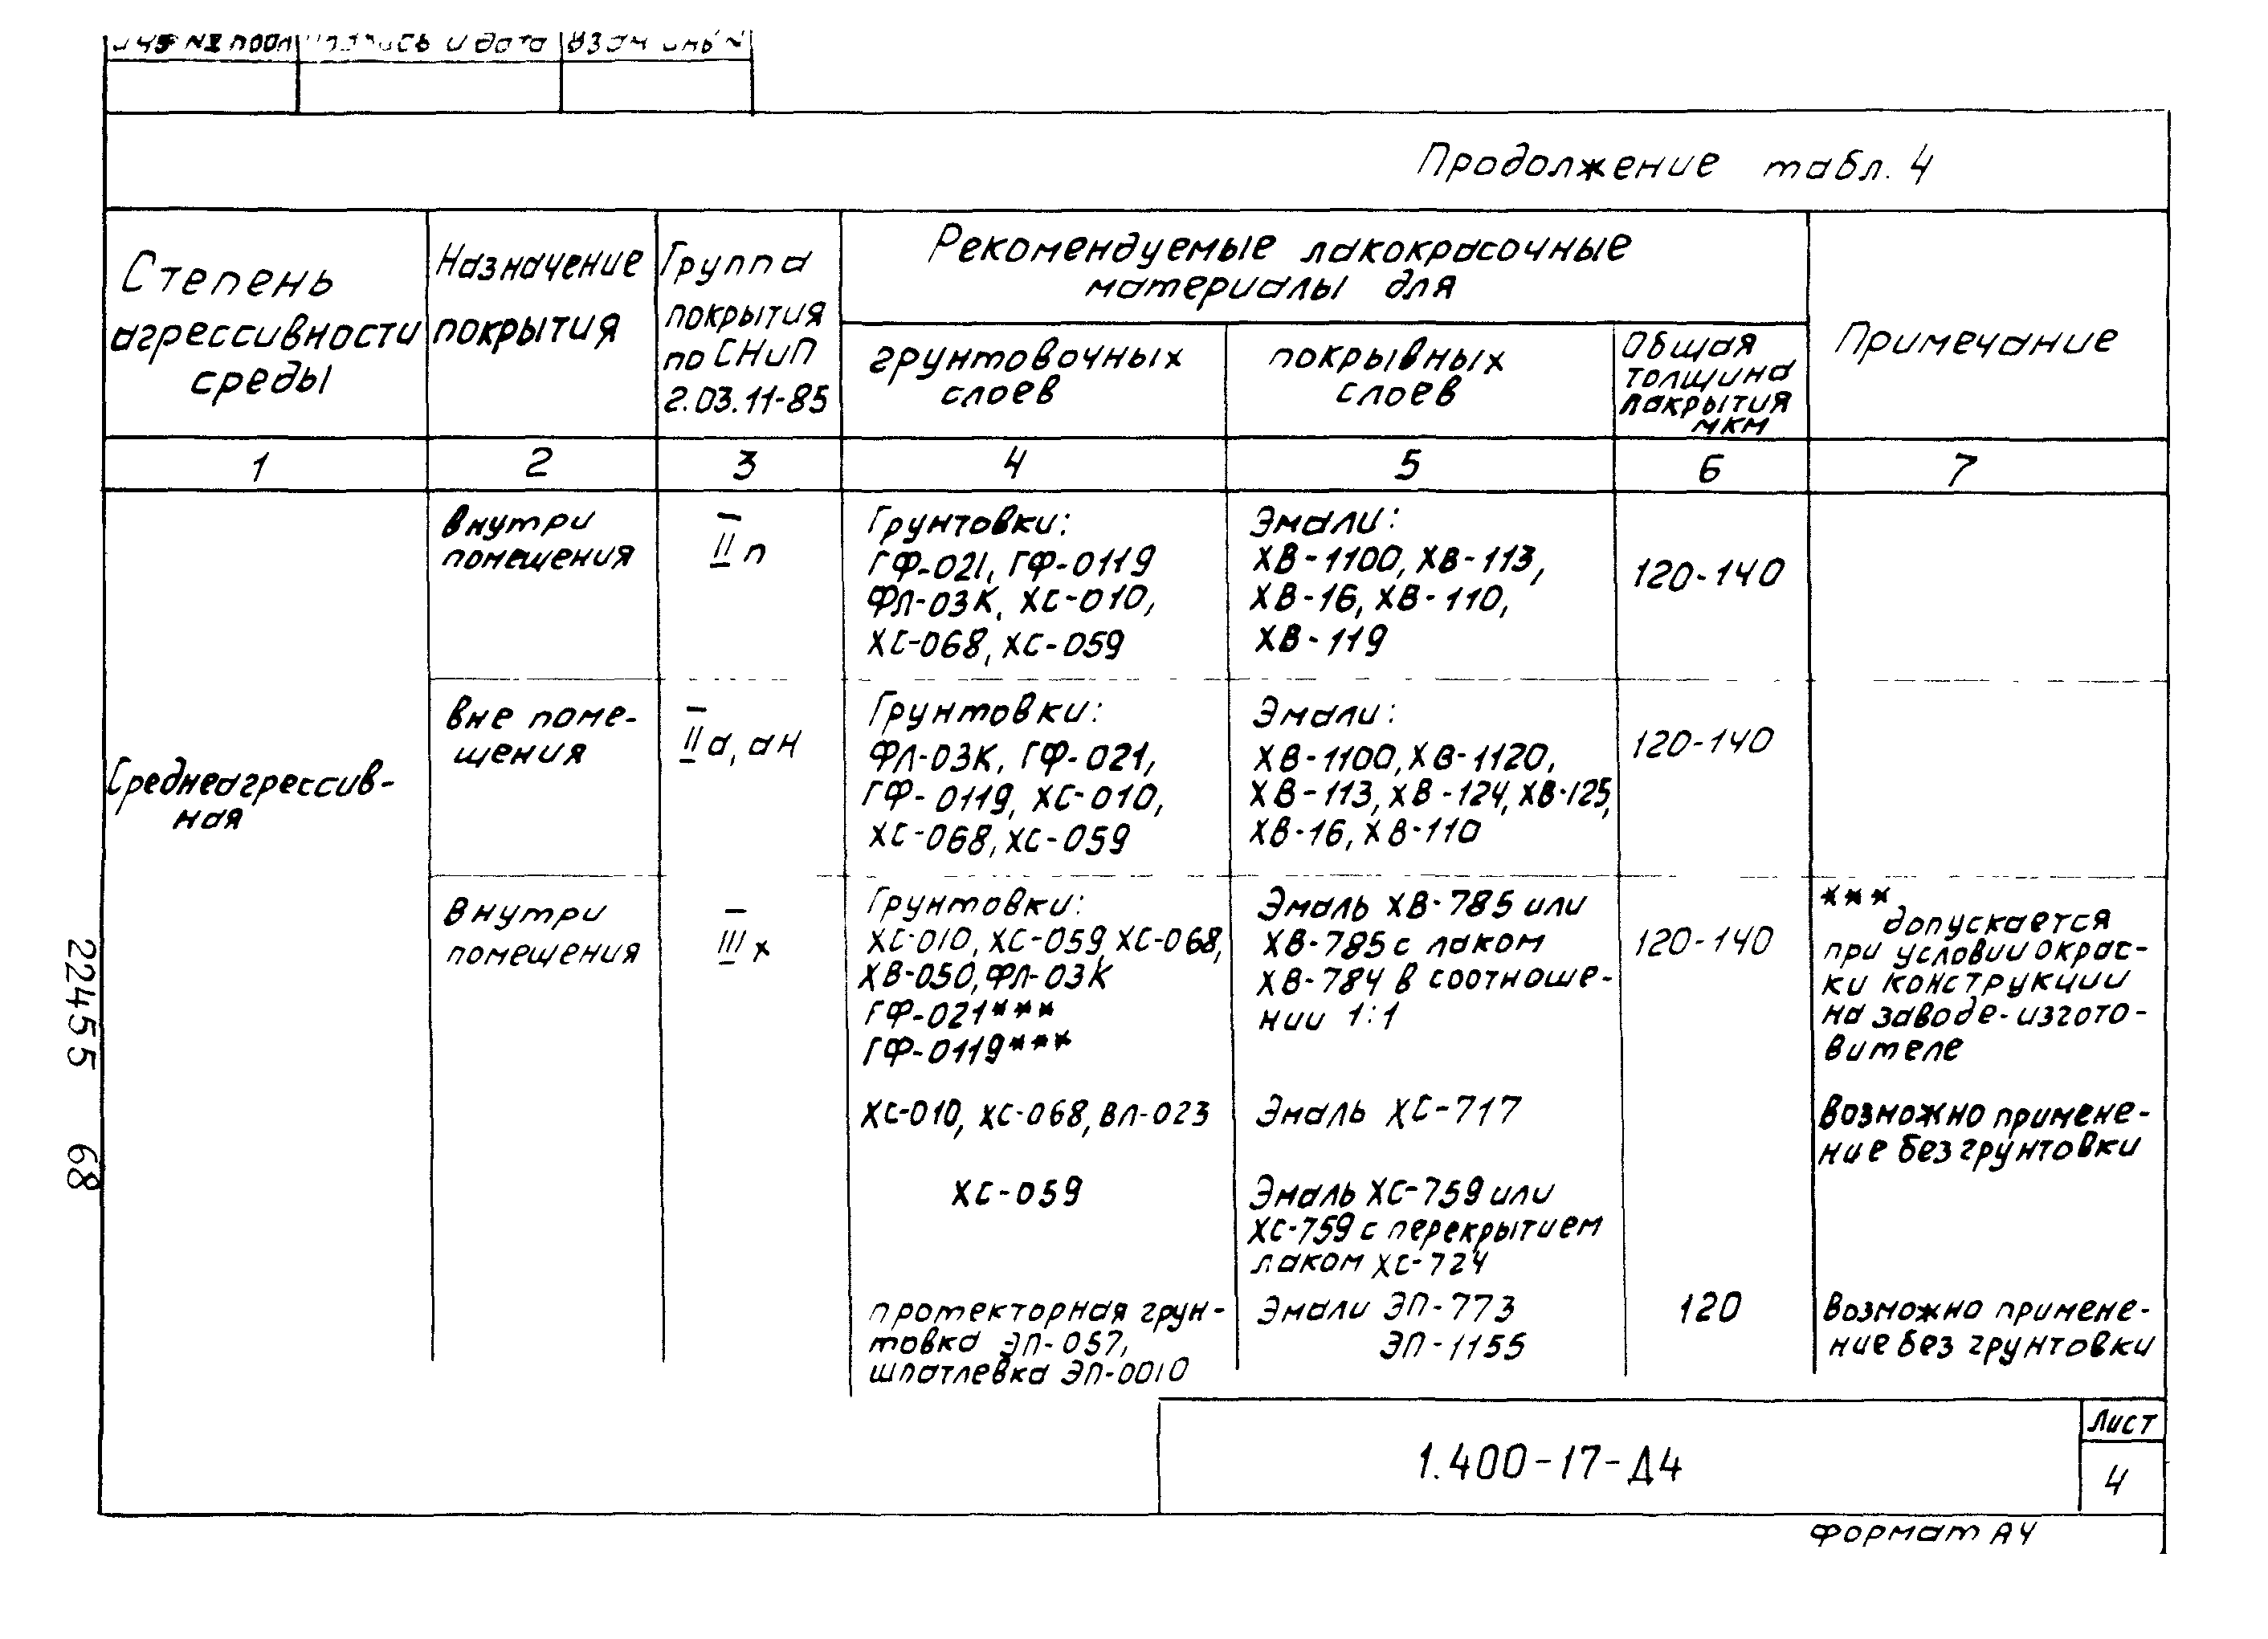 Инв № подл Подпись и дата Взам инв №
Продолжение табл. 4
Степень
агрессивности
среды
Назначение
покрытия
Группа
покрытия
по СНиП
2.03.11-85
Рекомендуемые лакокрасочные
материалы для
грунтовочных
слоев
покрывных
слоев
Общая
толщина
покрытия
мкм
Примечание
1 2 3 4 5 6 7
Среднеагрессив-
ная
внутри
помещения
II п
Грунтовки:
ГФ-021, ГФ-0119
ФЛ-03К, ХС-010,
ХС-068, ХС-059
Эмали:
ХВ-1100, ХВ-113,
ХВ-16, ХВ-110,
ХВ-119
120-140
вне поме-
щения
II а, ан
Грунтовки:
ФЛ-03К, ГФ-021,
ГФ-0119, ХС-010,
ХС-068, ХС-059
Эмали:
ХВ-1100, ХВ-1120,
ХВ-113, ХВ-124, ХВ-125,
ХВ-16, ХВ-110
120-140
Внутри
помещения
III х
Грунтовки:
ХС-010, ХС-059, ХС-068,
ХВ-050, ФЛ-03К
ГФ-021***
ГФ-0119***
Эмаль ХВ-785 или
ХВ-785 с лаком
ХВ-784 в соотноше-
нии 1:1
120-140
***
допускается
при условии окрас-
ки конструкции
на заводе-изгото-
вителе
ХС-010, ХС-068, ВЛ-023
Эмаль ХС-717
Возможно примене-
ние без грунтовки
ХС-059
Эмаль ХС-759 или
ХС-759 с перекрытием
лаком ХС-724
протекторная грун-
товка ЭП-057,
шпатлевка ЭП-0010
Эмали ЭП-773
ЭП-1155
120
Возможно примене-
ние без грунтовки
22455 68
1.400-17-Д4
Лист
4
Формат А4